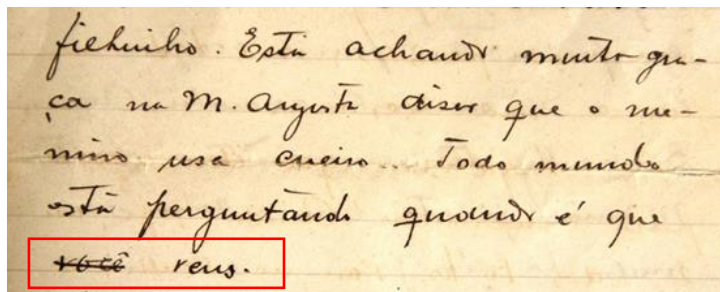 filhinho. Está achando muita gra-
ça na M. Augusta diser que o me-
nino usa cueiro. Todo mundo
está perguntando quando é que
você vens.